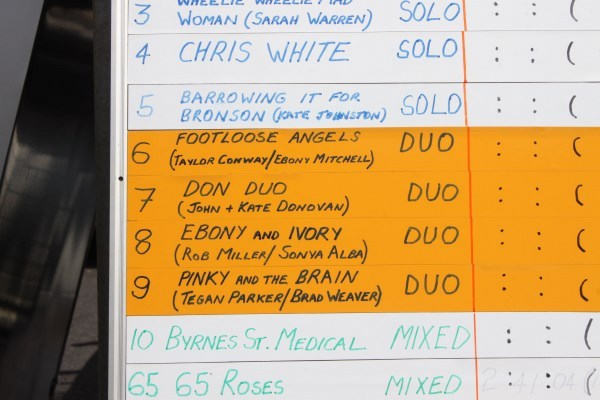 3 WHEELIE WHEELIE MAD
WOMAN (SARAH WARREN) SOLO : : (
4 CHRIS WHITE SOLO : : (
5 BARROWING IT FOR
BRONSON (KATE JOHNSTON) SOLO : : (
6 FOOTLOOSE ANGELS DUO : : (
(TAYLOR CONWAY/EBONY MITCHELL)
7 DON DUO DUO : : (
(JOHN + KATE DONOVAN)
8 EBONY AND IVORY DUO : : (
(ROB MILLER/SONYA ALBA)
9 PINKY AND THE BRAIN DUO : : (
(TEGAN PARKER/BRAD WEAVER)
10 BYRNES ST. MEDICAL MIXED : : (
65 65 ROSES MIXED : : (